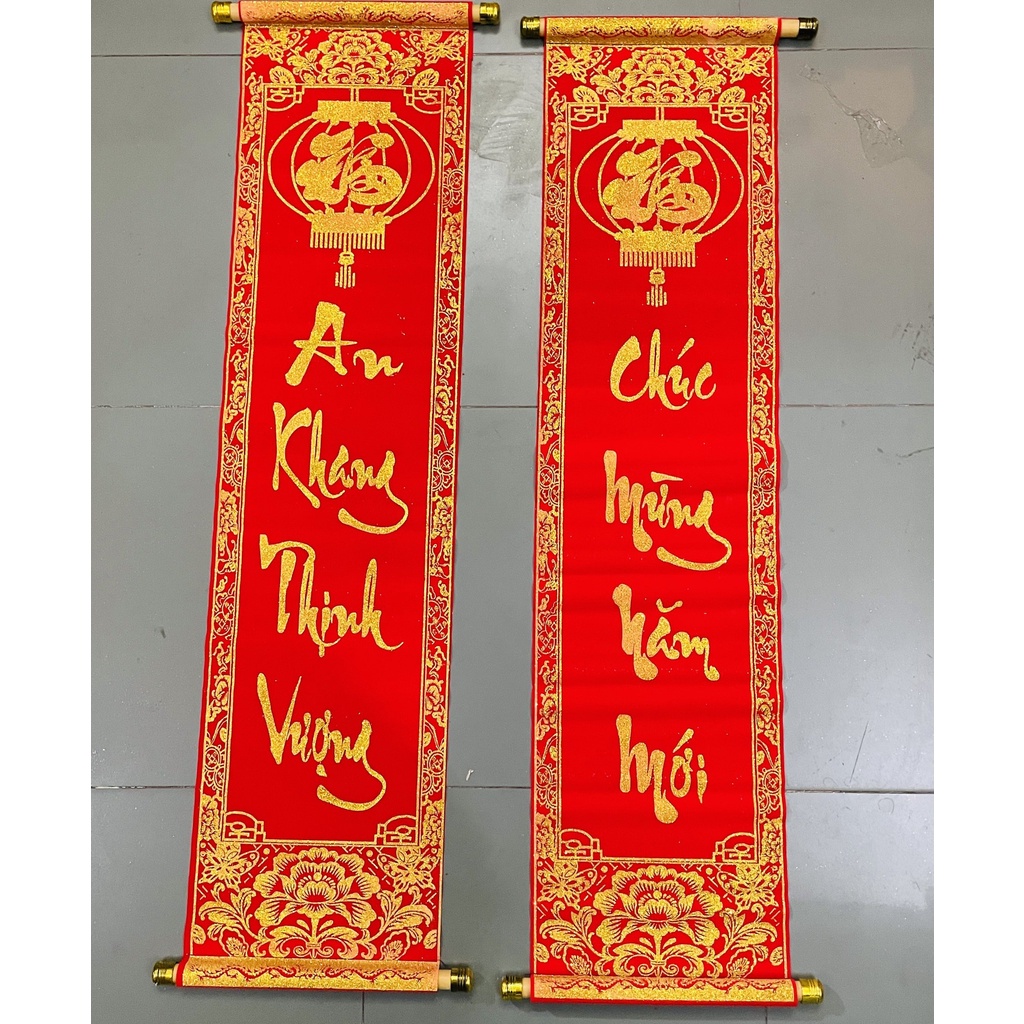 福
An
Khang
Thịnh
Vượng
福
Chúc
Mừng
Năm
Mới